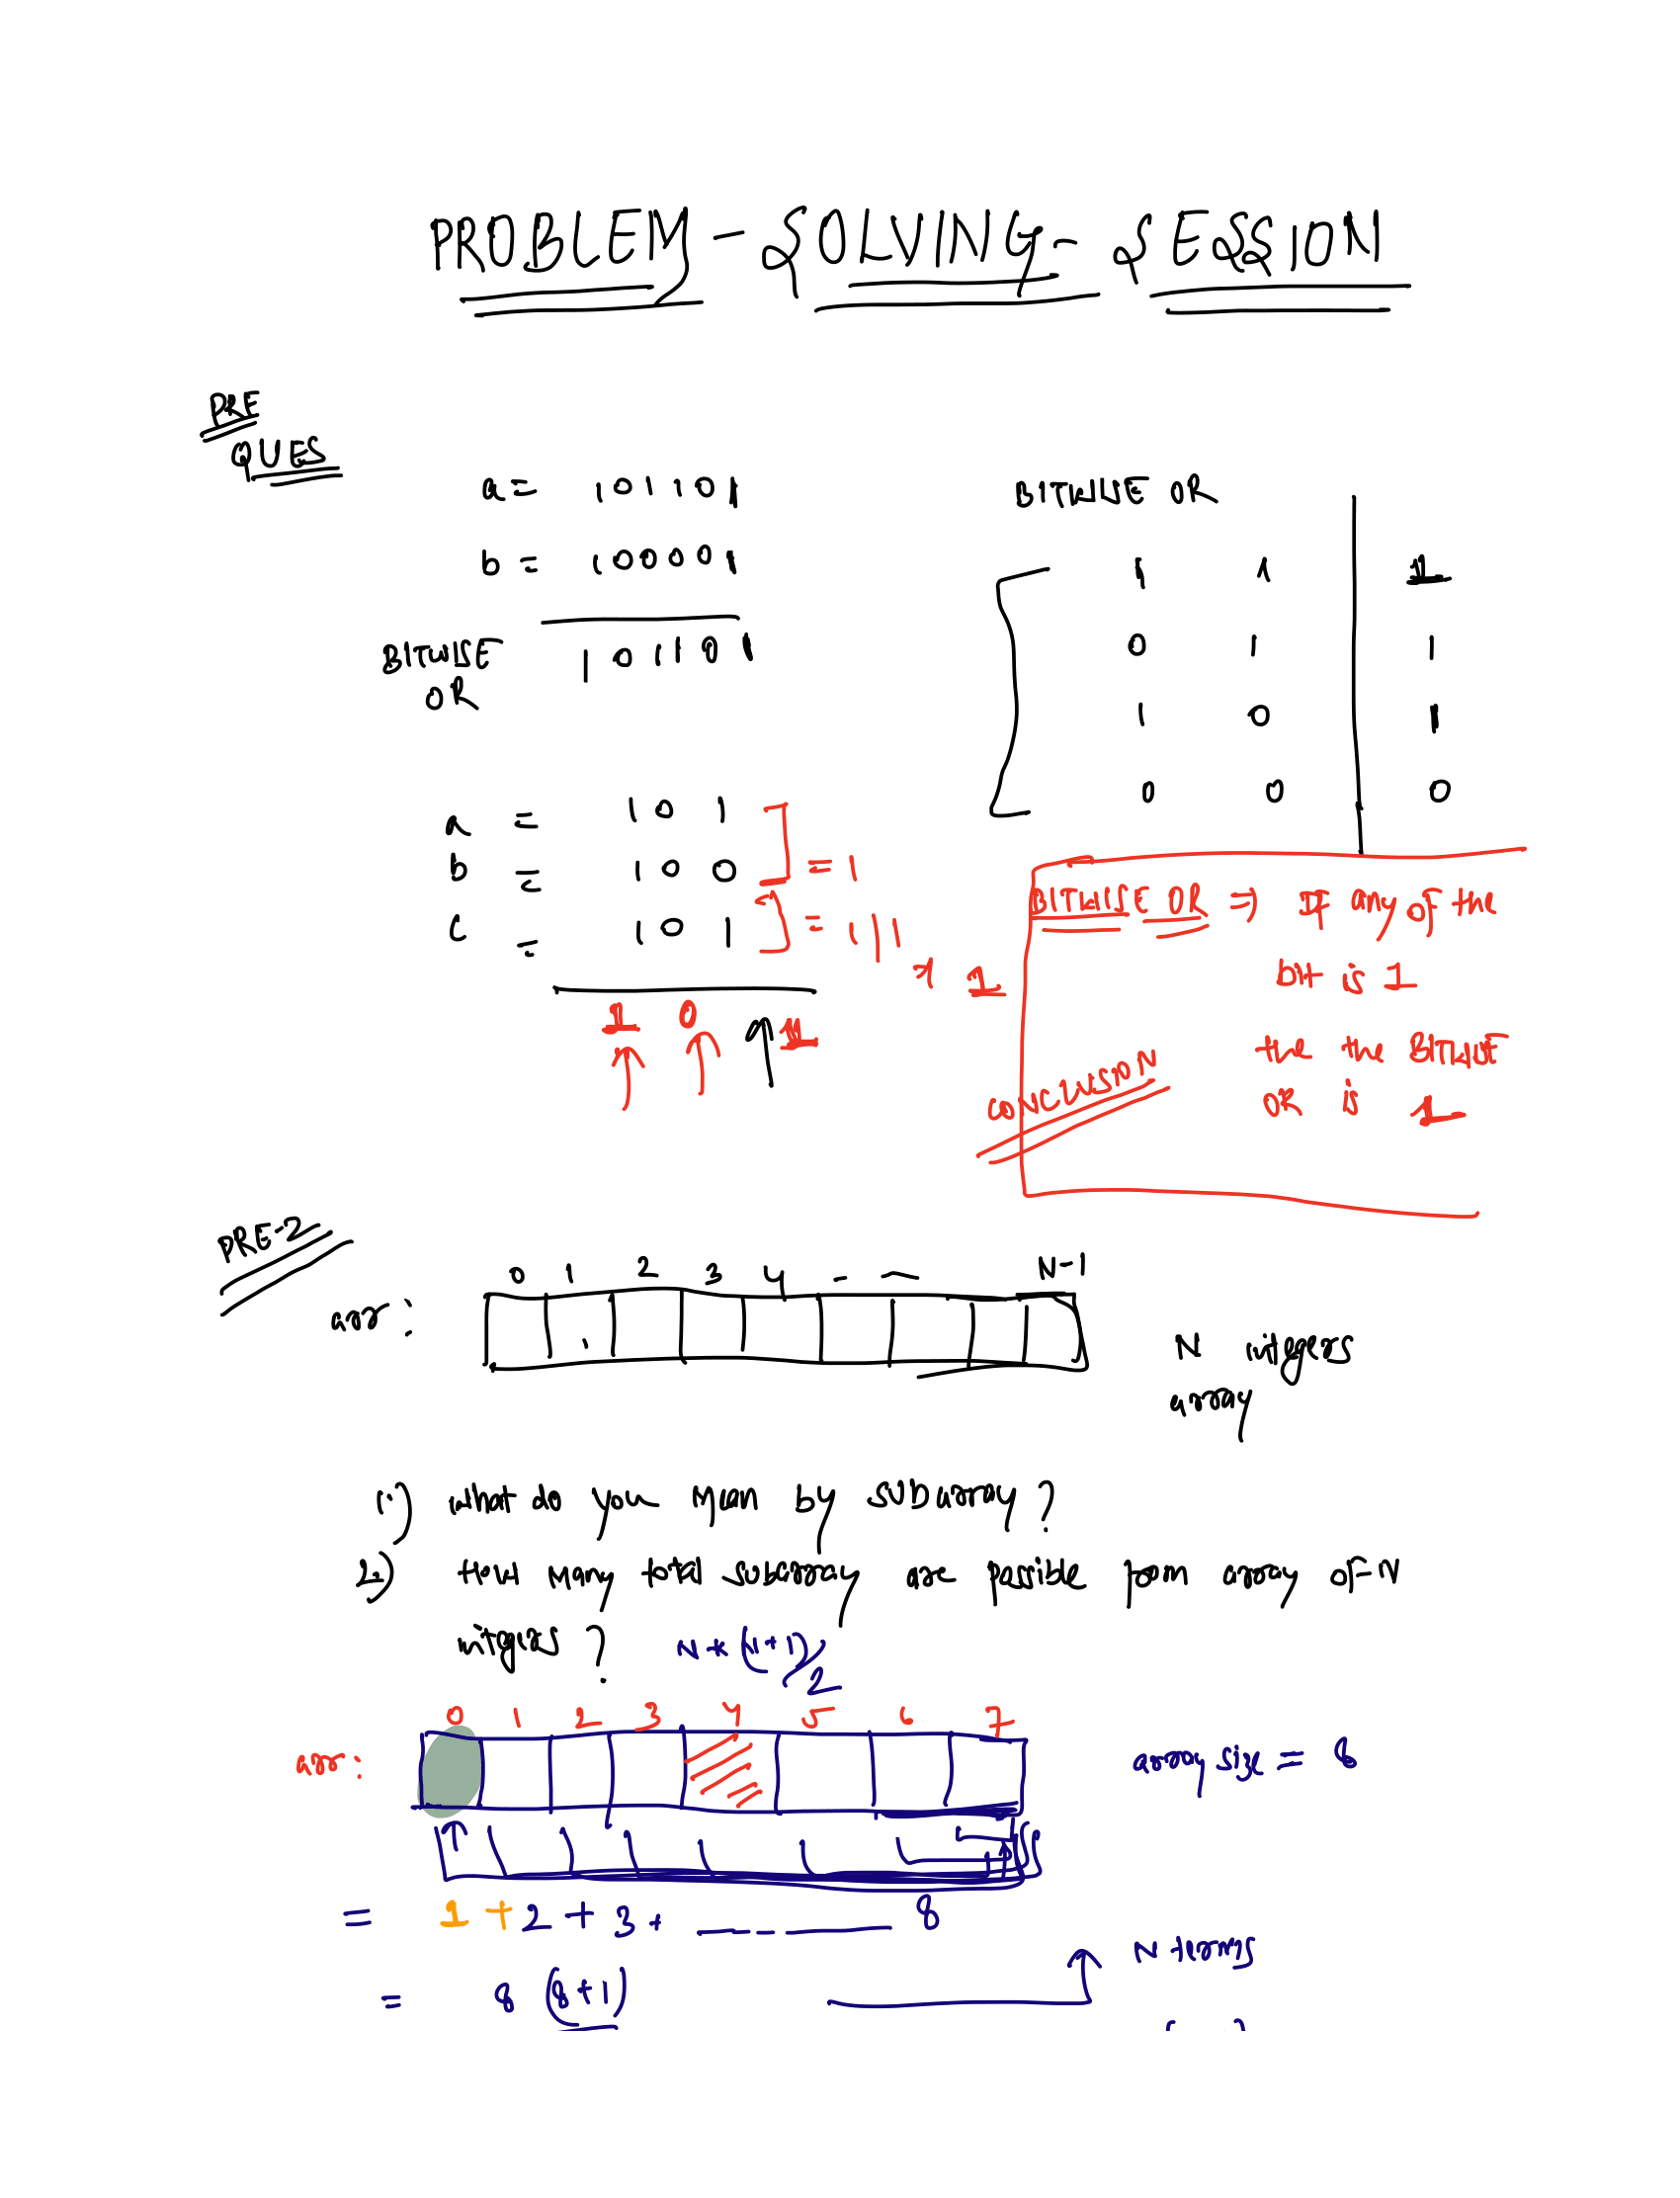 PROBLEM - SOLVING - SESSION
PRE
QUES
a = 101101
b = 100001
BITWISE 101101
OR
BITWISE OR
1 1 1
0 1 1
1 0 1
0 0 0
a = 101
b = 100 = 1
c = 101 = 1 | 1
1
1 0 1
BITWISE OR => If any of the
bit is 1
the the BITWISE
OR is 1
CONCLUSION
PRE-2
0 1 2 3 4 - - N-1
arr :
N integers
array
1.) what do you mean by subarray ?
2.) How many total subarray are possible from array of N
integers ? N * (N+1)/2
0 1 2 3 4 5 6 7
arr :
array size = 8
= 1 + 2 + 3 + ------ 8
N terms
= 8 (8+1)